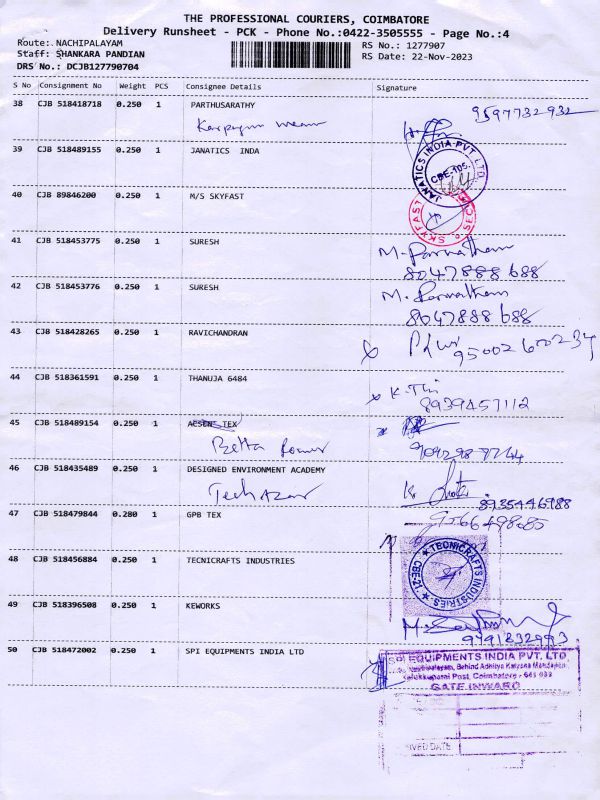 THE PROFESSIONAL COURIERS, COIMBATORE
Delivery Runsheet - PCK - Phone No.:0422-3505555 - Page No.:4
Route: NACHIPALAYAM
RS No.: 1277907
Staff: SHANKARA PANDIAN
RS Date: 22-Nov-2023
DRS No.: DCJB127790704
S No Consignment No Weight PCS Consignee Details Signature
38 CJB 518418718 0.250 1 PARTHUSARATHY 9597732932
39 CJB 518489155 0.250 1 JANATICS INDA
JANATICS INDIA PVT. LTD.
CBE-105.
40 CJB 89846200 0.250 1 M/S SKYFAST
SKYFAST
41 CJB 518453775 0.250 1 SURESH
M. Parvatham
8047888 688
42 CJB 518453776 0.250 1 SURESH
M. Parvatham
8047888 688
43 CJB 518428265 0.250 1 RAVICHANDRAN
44 CJB 518361591 0.250 1 THANUJA 6484
8939457112
45 CJB 518489154 0.250 1 ACSEN TEX
46 CJB 518435489 0.250 1 DESIGNED ENVIRONMENT ACADEMY
8935446988
47 CJB 518479844 0.280 1 GPB TEX
48 CJB 518456884 0.250 1 TECNICRAFTS INDUSTRIES
TECNICRAFTS INDUSTRIES
CBE-21
49 CJB 518396508 0.250 1 KEWORKS
9791832993
50 CJB 518472002 0.250 1 SPI EQUIPMENTS INDIA LTD
SPI EQUIPMENTS INDIA PVT. LTD
Behind Adhitya Kalyana Mandapam
Post, Coimbatore - 641 032
GATE INWARD
DATE